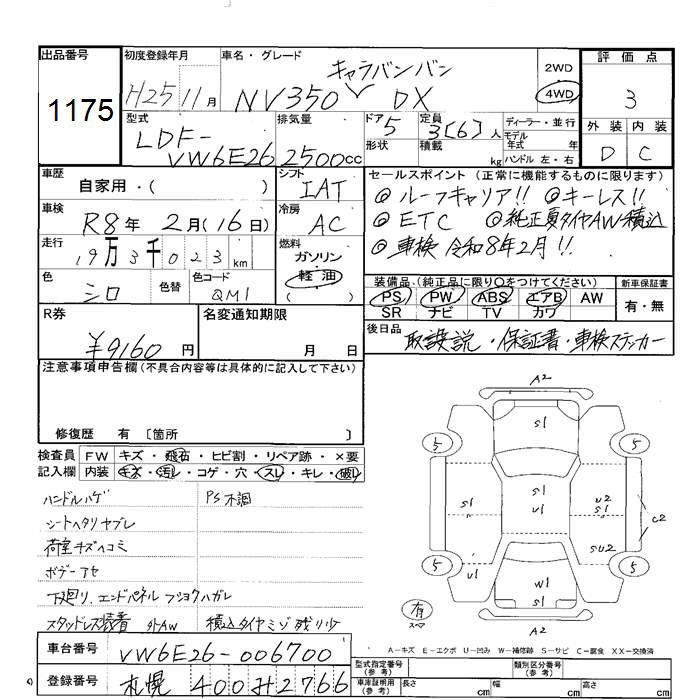 出品番号 初度登録年月 車名・グレード 2WD 4WD 評価点
1175 H25 11月 NV350 キャラバンバン DX 3
型式 排気量 ドア 定員 ディーラー・並行 外装 内装
LDF-VW6E26 2500cc 5 3[6]人 モデル年式 年 D C
形状 積載 kg ハンドル 左・右
車歴 自家用・( ) シフト IAT セールスポイント (正常に機能するものに限ります)
◎ ルーフキャリア!! ◎キーレス!!
車検 R8年 2月(16日) 冷房 AC
◎ ETC ◎純正夏タイヤAW積込
走行 19万3千023km 燃料 ガソリン 軽油 ( )
◎ 車検 令和8年2月!!
色 シロ 色替 色コード QM1
装備品(純正品に限り○をつけてください) 新車保証書
PS PW ABS エアB AW 有・無
SR ナビ TV カワ
R券 ¥9160円 名変通知期限 月 日
後日品 取説・保証書・車検ステッカー
注意事項申告欄(不具合内容等は具体的に記入して下さい)
修復歴 有 〔箇所 〕
検査員記入欄 FW キズ・飛石・ヒビ割・リペア跡・×要
内装 キズ・汚レ・コゲ・穴・スレ・キレ・破レ
ハンドルハゲ PS不調
シートヘタリヤブレ
荷室キズヘコミ
ボデーアセ
下廻り、エンドパネル フショクハガレ
スタッドレス装着 外AW 積込タイヤミゾ残り少
車台番号 VW6E26-006700
登録番号 札幌 400 み 2766
A2
S1
5 5
S1 S1 U2
U1 S1
C2
SU2
5 5
U1 W1
S1
有
スペア
A2
A-キズ E-エクボ U-凹み W-補修跡 S-サビ C-腐食 XX-交換済
型式指定番号(参考) 類別区分番号(参考)
車庫証明用(参考) 長さ cm 幅 cm 高さ cm